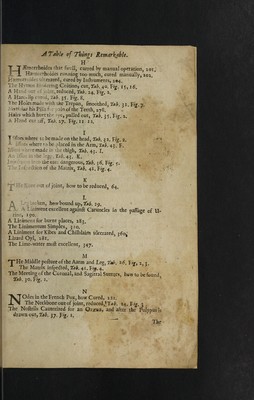 A Table of Things Remarkable.
H
HÆmorrhoides that swell, cured by manual operation, 101.
Hæmorrhoides running too much, cured manually, 102.
Hæmorrhoides ulcerated, cured by Instruments, 104.
The Hymen hindering Coition, cut, Tab. 40. Fig. 15, 16.
A Hand out of joint, reduced, Tab. 24. Fig. 2.
A Hare-lip cured, Tab. 35. Fig. 8.
The Holes made with the Trepan, smoothed, Tab. 31. Fig. 7.
his Pills for pain of the Teeth, 276.
Hairs which hurt the eye, pulled out, Tab. 33. Fig. 1.
A Hand cut off, Tab. 27. Fig. 11. 12.
I
ISsues where to be made on the head, Tab. 32. Fig. 1.
Issues where to be placed in the Arm, Tab. 43. F.
Issues where made in the thigh, Tab. 43. I.
An Issue in the legg, Tab. 43. K.
dangerous, Tab. 36. Fig. 5.
of the Matrix, Tab. 41. Fig. 4.
K
THe Knee out of joint, how to be reduced, 64.
L
A Leg broken, how bound up, Tab. 29.
A Liniment excellent against Caruncles in the passage of Urine, 190.
A Liniment for burnt places, 283.
The Linimentum Simplex, 310.
A Liniment for Kibes and Chilblains ulcerated, 360.
Lizard Oyl, 281.
The Lime-water most excellent, 397.
M
THe Middle posture of the Arme and Leg, Tab. 28. Fig. 2, 3.
The Matrix inspected, Tab. 41. Fig. 2.
The Meeting of the Coronal, and Sagittal Suture, how to be found, Tab. 30. Fig. 1.
N
NOses in the French Pox, how Cured, 211.
The Neckbone out of joint, reduced, Tab. 22. Fig. 3.
The Nostrils Cauterized for an Ozæna, and after the Polypus is drawn out, Tab. 37. Fig. 1.
The